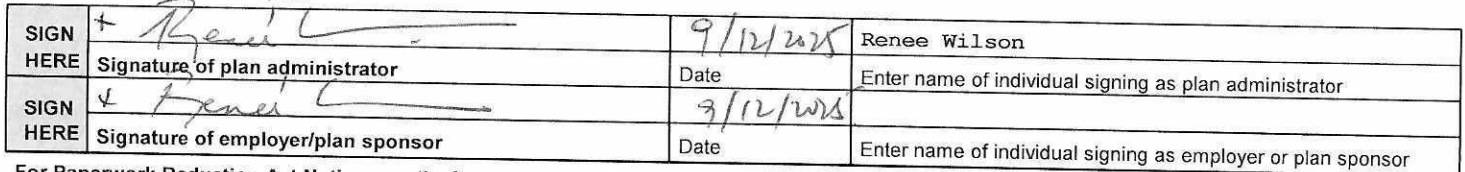 SIGN HERE + Renee 9/12/2025 Renee Wilson
Signature of plan administrator Date Enter name of individual signing as plan administrator
SIGN HERE + Renee 9/12/2025
Signature of employer/plan sponsor Date Enter name of individual signing as employer or plan sponsor